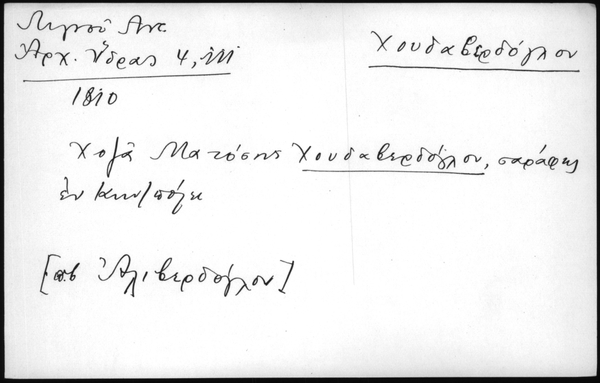 Λιγνοῦ Ἀντ.
Ἀρχ. Ὕδρας 4, 111
Χουδαβερδόγλου
1810
Χοζᾶ Ματόσης Χουδαβερδόγλου, σαράφης
ἐν Κων/πόλει
[πβ Ἀλιβερδόγλου]